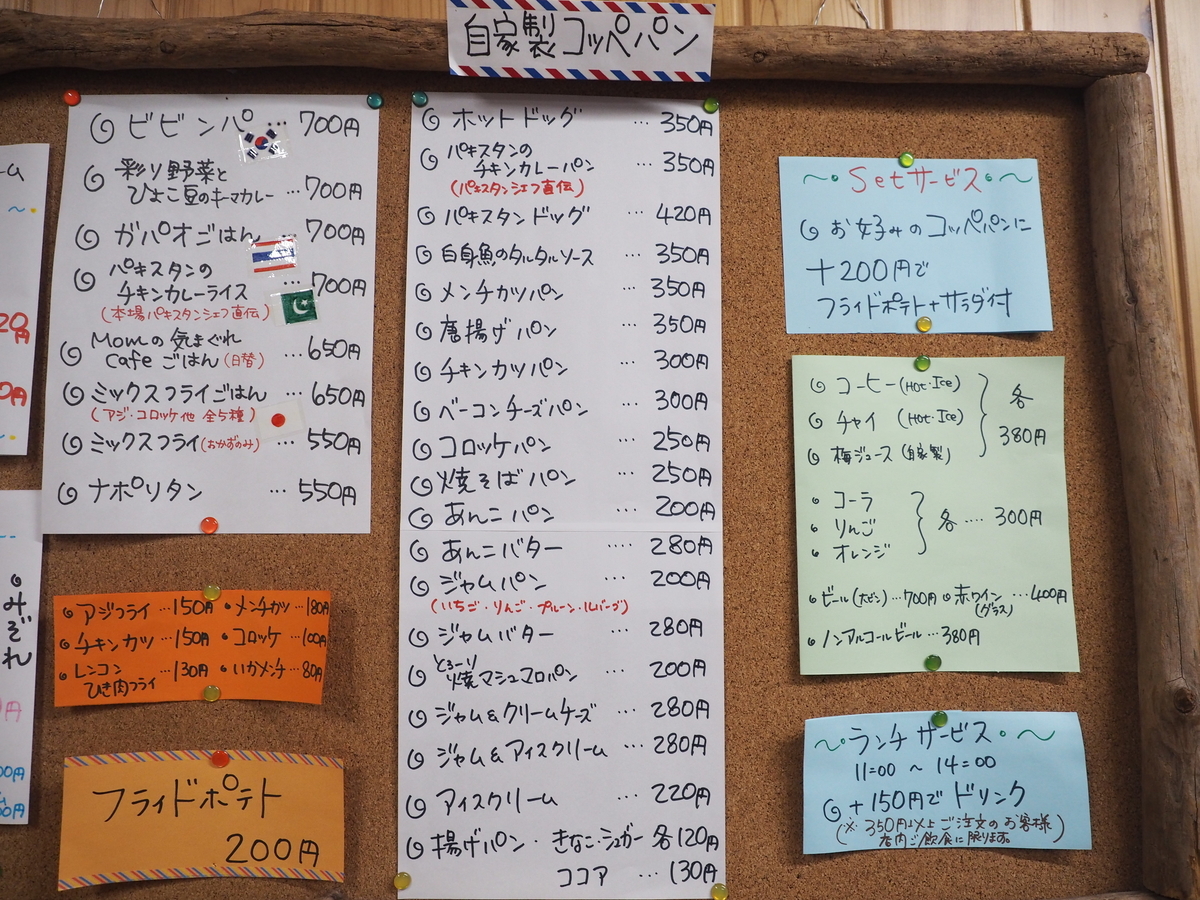 自家製コッペパン
ビビンパ … 700円
彩り野菜と
ひよこ豆のキーマカレー …700円
ガパオごはん 700円
パキスタンの
チキンカレーライス … 700円
(本場パキスタンシェフ直伝)
Momの気まぐれ
cafeごはん(日替) …650円
ミックスフライごはん …650円
(アジ・コロッケ他 全5種)
ミックスフライ(おかずのみ) … 550円
ナポリタン … 550円
アジフライ …150円 ・メンチカツ …180円
チキンカツ …150円 ・コロッケ …100円
レンコン
ひき肉フライ …130円 ・いかメンチ …80円
フライドポテト
200円
ホットドッグ … 350円
パキスタンの
チキンカレーパン … 350円
(パキスタンシェフ直伝)
パキスタンドッグ … 420円
白身魚のタルタルソース … 350円
メンチカツパン … 350円
唐揚げパン … 350円
チキンカツパン … 300円
ベーコンチーズパン … 300円
コロッケパン … 250円
焼そばパン … 250円
あんこパン … 200円
あんこバター …. 280円
ジャムパン …. 200円
(いちご・りんご・プルーン・ルバーブ)
ジャムバター … 280円
とろーり
焼マシュマロパン … 200円
ジャム&クリームチーズ … 280円
ジャム&アイスクリーム … 280円
アイスクリーム … 220円
揚げパン・きなこ・シュガー 各120円
ココア … 130円
〜・Setサービス・〜
お好みのコッペパンに
+200円で
フライドポテト+サラダ付
コーヒー(Hot・Ice)
チャイ (Hot・Ice)
梅ジュース(自家製)
各
380円
・コーラ
・りんご
・オレンジ
各 …. 300円
・ビール(大ビン) …700円 ・赤ワイン
(グラス) …400円
・ノンアルコールビール …380円
〜・ランチサービス・〜
11:00 〜 14:00
+150円でドリンク
(※350円以上ご注文のお客様
店内ご飲食に限ります。)
みぞれ